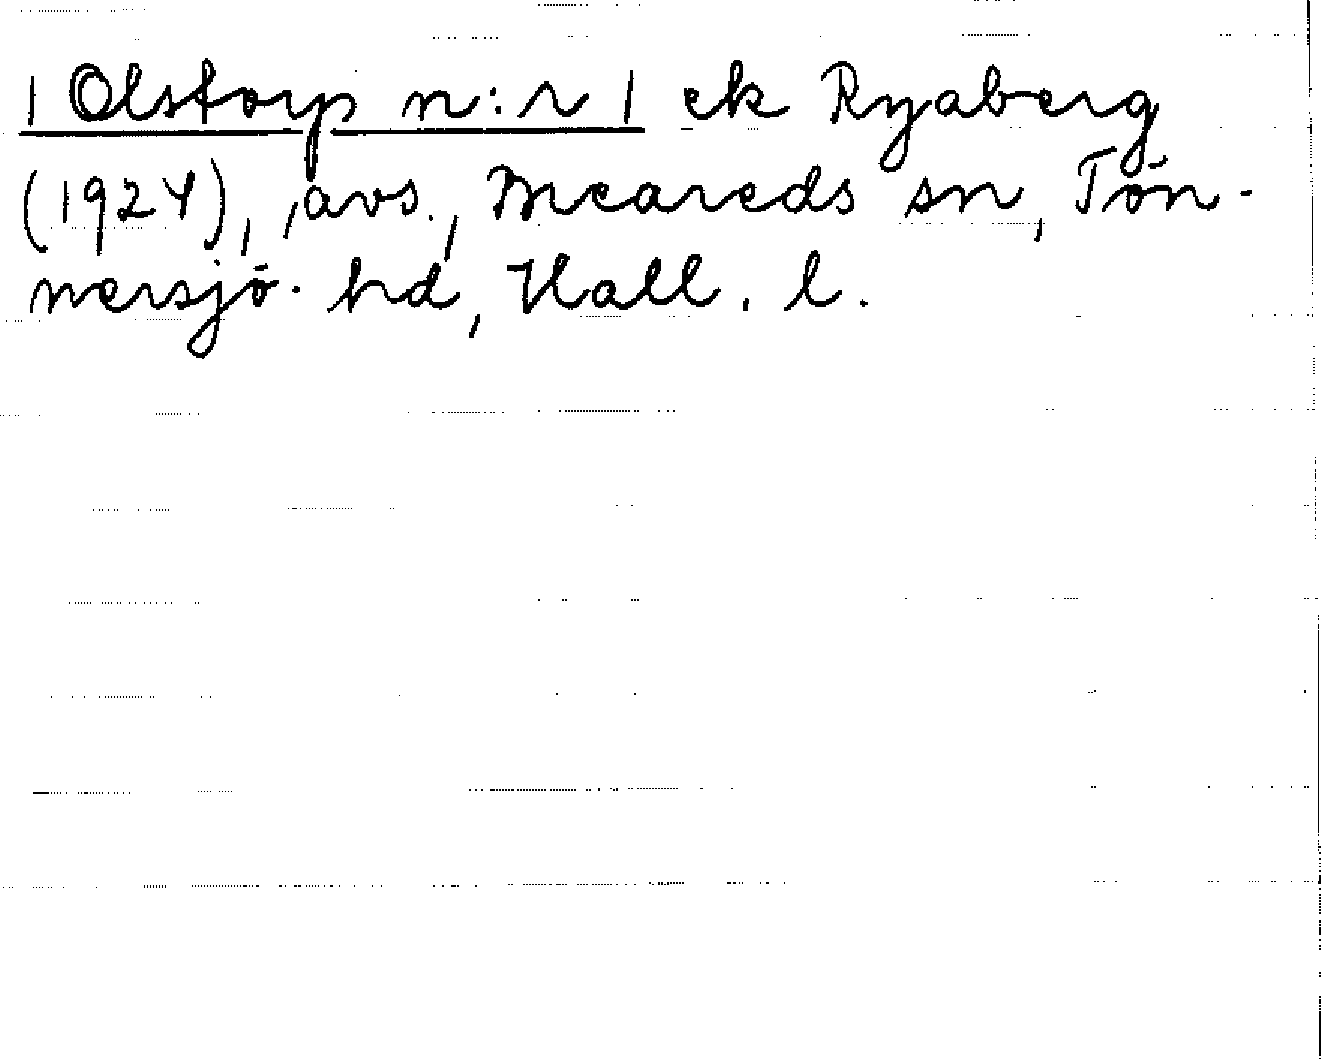 1 Olstorp n:r 1 ek Ryaberg
(1924), avs., Meareds sn, Tön-
nersjö hd, Hall. l.